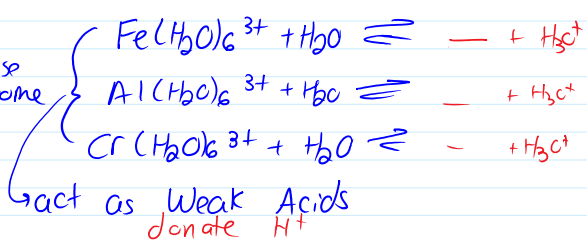 Fe(H₂O)₆ ³⁺ + H₂O ⇌ — + H₃O⁺
some
Al(H₂O)₆ ³⁺ + H₂O ⇌ — + H₃O⁺
Cr(H₂O)₆ ³⁺ + H₂O ⇌ – + H₃O⁺
act as Weak Acids
donate H⁺